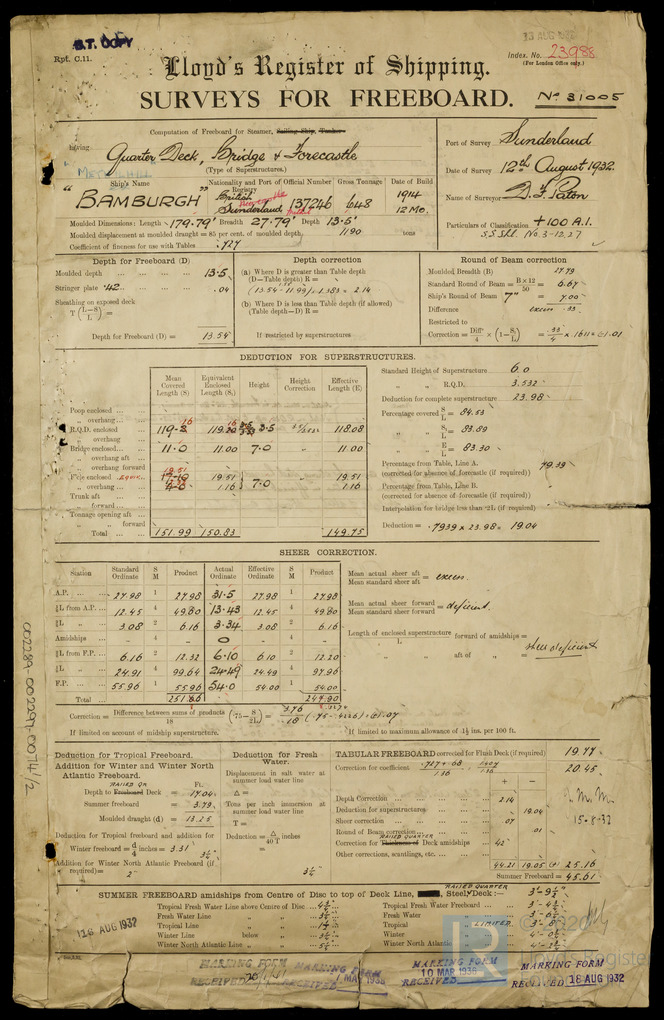 B.T. COPY
13 AUG 1932
Rpt. C.11.
Index. No. 23988
(For London Office only.)
Lloyd's Register of Shipping.
SURVEYS FOR FREEBOARD.
No 31005
Computation of Freeboard for Steamer, Sailing Ship, Tanker
having Quarter Deck, Bridge & Forecastle
(Type of Superstructures.)
Port of Survey Sunderland
Date of Survey 12th August 1932.
Name of Surveyor D. F. Paton
Particulars of Classification +100 A.1.
S.S. Shl. No. 3-12.27
Ship's Name
Nationality and Port of Registry
Official Number
Gross Tonnage
Date of Build
"BAMBURGH"
British
Sunderland
137246
648
1914
12 Mo.
Moulded Dimensions: Length 179.79' Breadth 27.79' Depth 13.5'
Moulded displacement at moulded draught = 85 per cent. of moulded depth. 1190 tons
Coefficient of fineness for use with Tables .727
Depth for Freeboard (D)
Moulded depth ... 13.5
Stringer plate .42 ... .04
Sheathing on exposed deck
T (L-S/L) =
Depth for Freeboard (D) = 13.54
Depth correction
(a) Where D is greater than Table depth
(D—Table depth) R =
(13.54 - 11.99) 1.383 = 2.14
(b) Where D is less than Table depth (if allowed)
(Table depth—D) R =
If restricted by superstructures
Round of Beam correction
Moulded Breadth (B) 27.79
Standard Round of Beam = B × 12 / 50 = 6.67
Ship's Round of Beam 7" = 7.00
Difference excess .33
Restricted to
Correction = Diff / 4 × (1 - S₁/L) = .33/4 × .1611 = -.01
DEDUCTION FOR SUPERSTRUCTURES.
Mean Covered Length (S)
Equivalent Enclosed Length (S₁)
Height
Height Correction
Effective Length (E)
Poop enclosed
„ overhang
R.Q.D. enclosed 3.5 118.08
„ overhang
Bridge enclosed 11.0 11.00 7.0 11.00
„ overhang aft
„ overhang forward
F'cle enclosed 19.51 19.51 7.0 19.51
„ overhang 1.16 1.16
Trunk aft
„ forward
Tonnage opening aft
„ forward
Total 151.99 150.83 149.75
Standard Height of Superstructure 6.0
„ „ R.Q.D. 3.532
Deduction for complete superstructure 23.98
Percentage covered S/L = 84.53
„ „ S₁/L = 83.89
„ „ E/L = 83.30
Percentage from Table, Line A. 79.39
(corrected for absence of forecastle (if required))
Percentage from Table, Line B.
(corrected for absence of forecastle (if required))
Interpolation for bridge less than ·2L (if required)
Deduction = .7939 × 23.98 = 19.04
SHEER CORRECTION.
Station
Standard Ordinate
S M
Product
Actual Ordinate
Effective Ordinate
S M
Product
A.P. 27.98 1 27.98 31.5 27.98 1 27.98
⅙L from A.P. 12.45 4 49.80 13.43 12.45 4 49.80
⅓L „ 3.08 2 6.16 3.34 3.08 2 6.16
Amidships - 4 - 0 - 4 -
⅓L from F.P. 6.16 2 12.32 6.10 6.10 2 12.20
⅙L „ 24.91 4 99.64 24.49 24.49 4 97.96
F.P. 55.96 1 55.96 54.0 54.00 1 54.00
Total
Mean actual sheer aft / Mean standard sheer aft = excess.
Mean actual sheer forward / Mean standard sheer forward = deficient.
Length of enclosed superstructure / L forward of amidships =
„ „ aft of „ = sheer deficient
Correction = Difference between sums of products / 18 (·75 - S/2L) = 3.76 / 18 (.75 - .4226) = .07
If limited on account of midship superstructure.
If limited to maximum allowance of 1½ ins. per 100 ft.
Deduction for Tropical Freeboard.
Addition for Winter and Winter North Atlantic Freeboard.
RAISED QR
Ft.
Depth to Freeboard Deck = 17.04
Summer freeboard = 3.79
Moulded draught (d) = 13.25
Deduction for Tropical freeboard and addition for
Winter freeboard = d/4 inches = 3.31
3¼"
Addition for Winter North Atlantic Freeboard (if required) = 2"
Deduction for Fresh Water.
Displacement in salt water at summer load water line
Δ =
Tons per inch immersion at summer load water line
T =
Deduction = Δ / 40 T inches
=
3¼"
TABULAR FREEBOARD corrected for Flush Deck (if required) 19.77
Correction for coefficient .727 + .68 / 1.36 20.45
+ -
Depth Correction 2.14
Deduction for superstructures 19.04
Sheer correction .07
Round of Beam correction .01
RAISED QUARTER
Correction for Thickness of Deck amidships 42
Other corrections, scantlings, etc.
44.21 19.05 25.16
Summer Freeboard = 45.61
15-8-32
SUMMER FREEBOARD amidships from Centre of Disc to top of Deck Line, Steel RAISED QUARTER Deck:— 3'-9½"
Tropical Fresh Water Line above Centre of Disc
Fresh Water Line „
Tropical Line „
Winter Line below „
Winter North Atlantic Line „
Tropical Fresh Water Freeboard
Fresh Water „
Tropical „
Winter „
Winter North Atlantic „
16 AUG 1932
MARKING FORM
RECEIVED
MARKING FORM
MARKING FORM
10 MAR 1936
RECEIVED
MARKING FORM
RECEIVED 16 AUG 1932
LR
LIMITED
© 2020
Lloyd's Register
002289-002297-0074 1/2